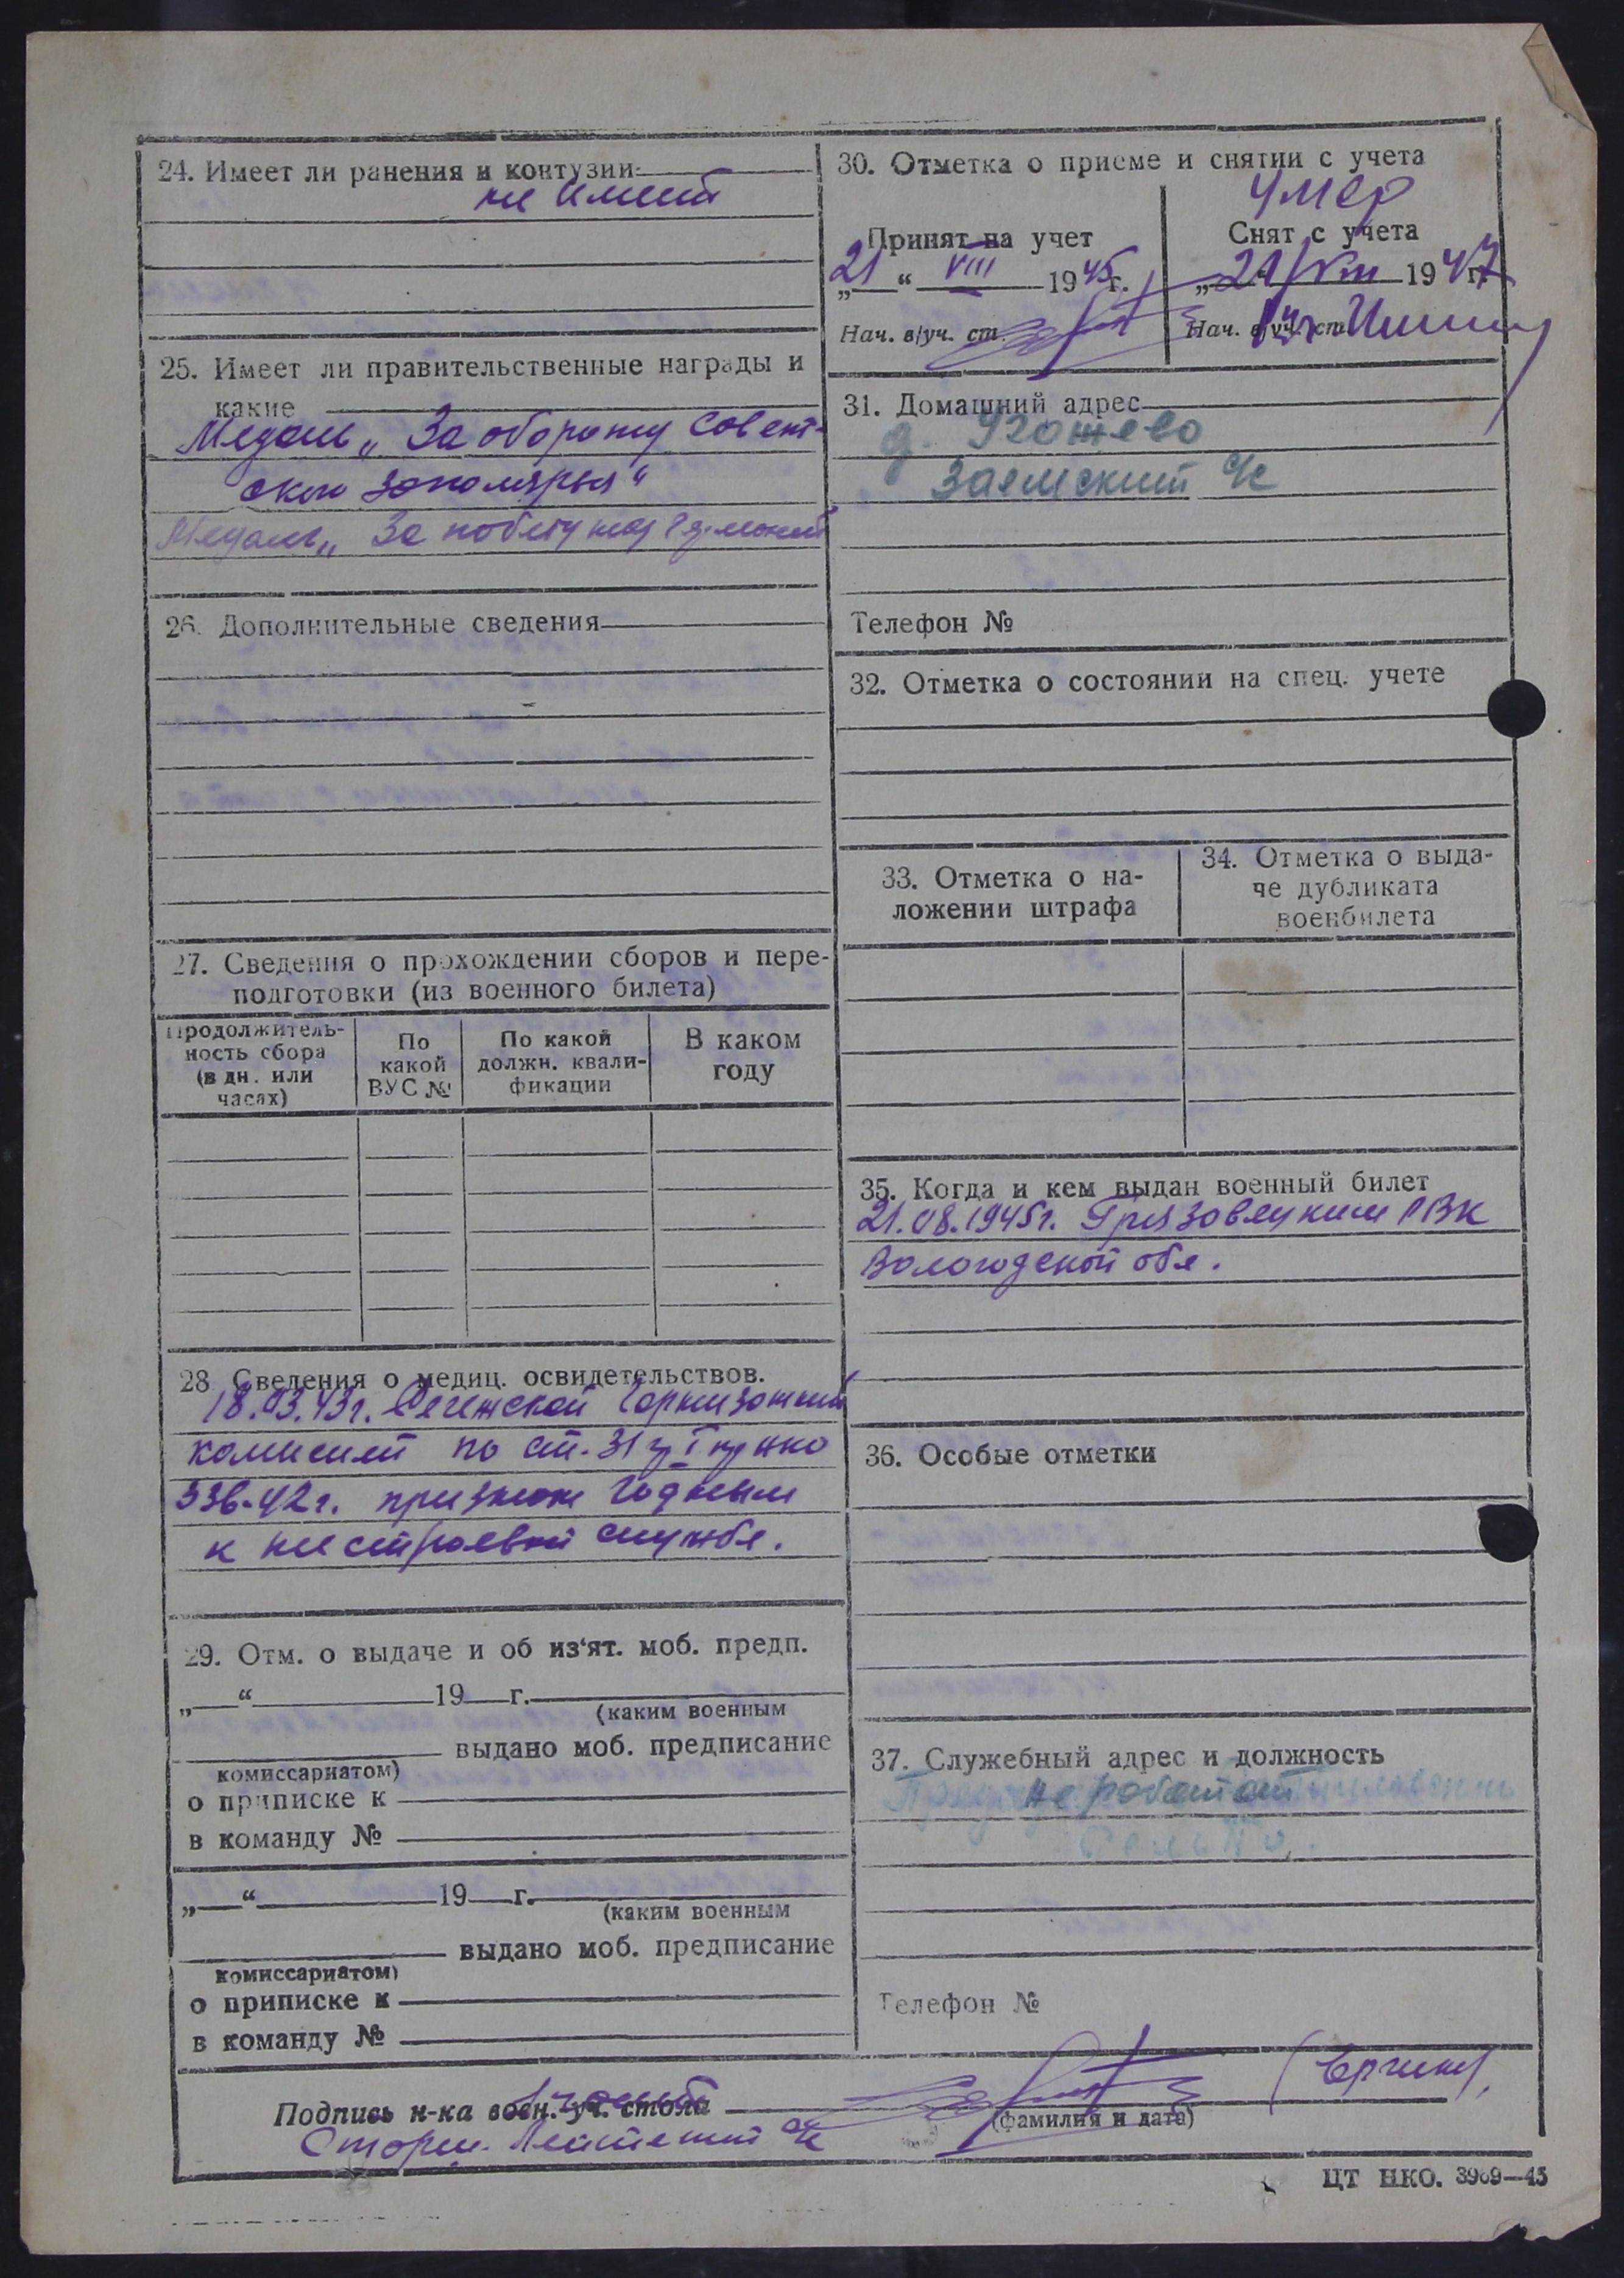 24. Имеет ли ранения и контузии
не имеет
25. Имеет ли правительственные награды и
какие
Медаль „За оборону Совет-
ского заполярья“
Медаль „За победу над Германией
26. Дополнительные сведения
27. Сведения о прохождении сборов и пере-
подготовки (из военного билета)
Продолжитель-
ность сбора
(в дн. или
часах)
По
какой
ВУС №
По какой
должн. квали-
фикации
В каком
году
28 Сведения о медиц. освидетельствов.
18.03.43г. Сегежской Гарнизонной
комиссией по ст. 31 гр I пр НКО
336-42г. признан годным
к нестроевой службе.
29. Отм. о выдаче и об из‘ят. моб. предп.
„ “ 19 г.
(каким военным
выдано моб. предписание
комиссариатом)
о приписке к
в команду №
„ “ 19 г.
(каким военным
выдано моб. предписание
комиссариатом)
о приписке к
в команду №
30. Отметка о приеме и снятии с учета
умер
Принят на учет
„21“ VIII 1945г.
Нач. в/уч. ст.
Снят с учета
„21/VIII 1947г.
Нач. в/уч. ст.
31. Домашний адрес
д.
Заемский с/с
Телефон №
32. Отметка о состоянии на спец. учете
33. Отметка о на-
ложении штрафа
34. Отметка о выда-
че дубликата
военбилета
35. Когда и кем выдан военный билет
21.08.1945г. Грязовецким РВК
Вологодской обл.
36. Особые отметки
37. Служебный адрес и должность
Не работает
Телефон №
Подпись н-ка воен. уч. стола
(фамилия и дата)
Старш. Лейтенант а/с
ЦТ НКО. 3969—45